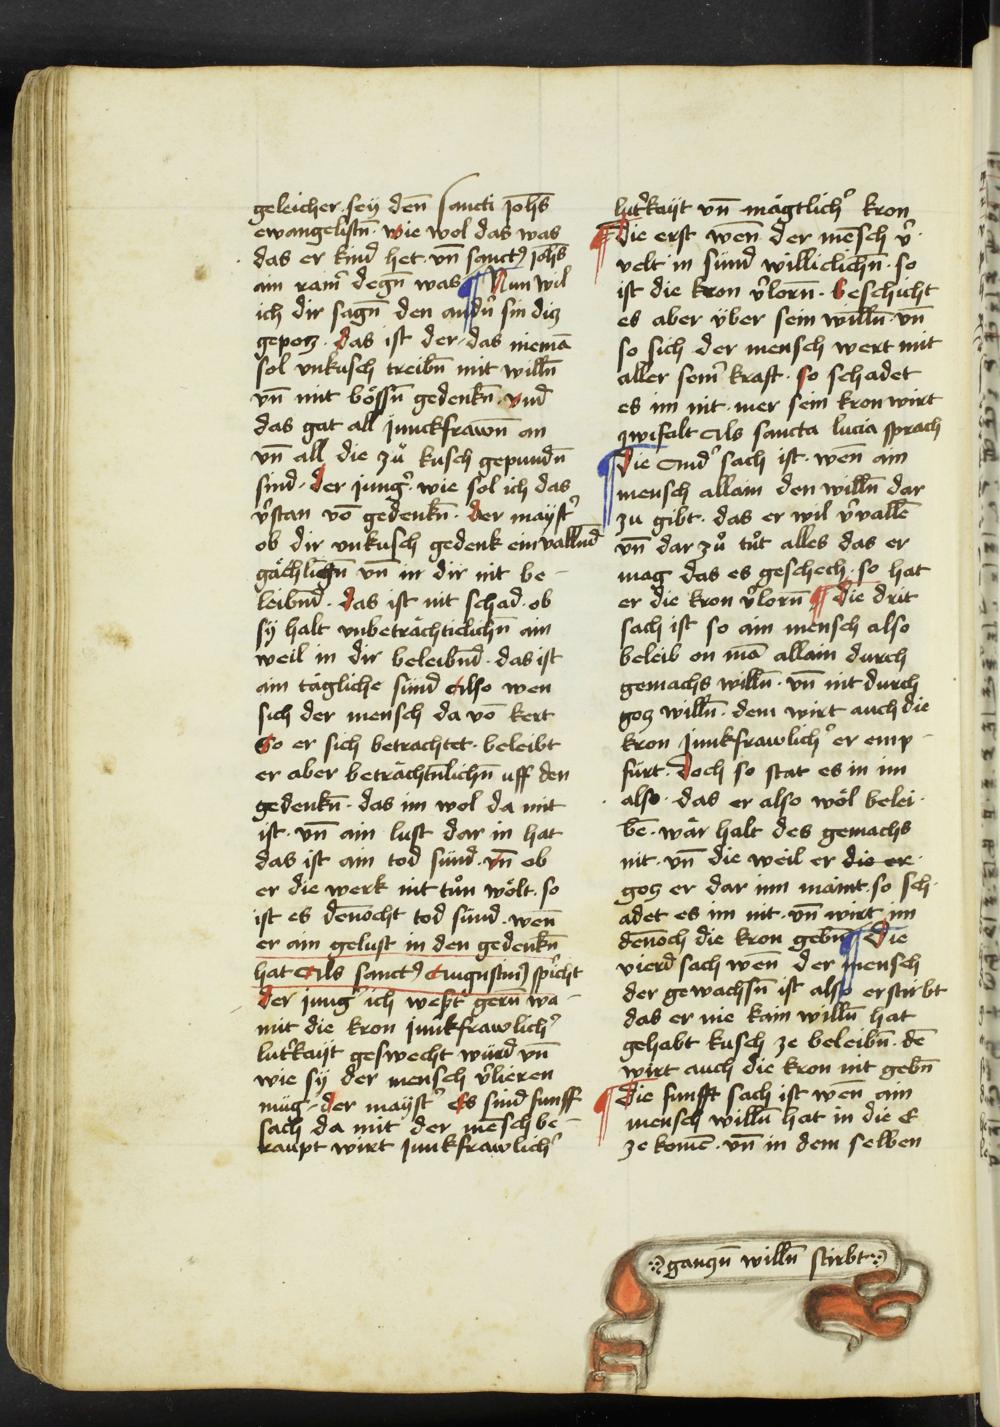 geleicher. sey den̄ sancti Joh̄s
ewangelistn̄. wie wol das was
das er kind het. vn̄ sanctꝰ Joh̄s
ain rainʾ degn̄ was ¶ Nun wil
ich dir sagn̄ den andʾn sin diz
gepotz. das ist der. das niemā
sol vnkusch treibn̄ mit willn̄
vn̄ mit bössn̄ gedenkn̄. vnd
das gat all junckfrawn̄ an
vn̄ all die zů kusch gepundn̄
sind. der jungʾ. wie sol ich das
vʾstan vō gedenkn̄. der maystʾ
ob dir vnkusch gedenk einvallnd̄
gächlichn̄ vn̄ in dir nit be-
leibnd̄. das ist nit schad. ob
sy halt vnbeträchticlichn̄ ain
weil in dir beleibnd̄. das ist
ain tägliche sünd Also wen
sich der mensch da vō kert
So er sich betrachtet. beleibt
er aber beträchtn̄lichn̄ uff den
gedenkn̄. das im wol da mit
ist. vn̄ ain lust dar in hat
das ist ain tod sünd. vn̄ ob
er die werk nit tůn wölt. so
ist es den̄ocht tod sünd. wen̄
er ain gelust in den gedenkn̄
hat Als sanctꝰ Augustinꝰ spʾicht
der jungʾ ich west gern̄ wa-
mit die kron junkfrawlichʾ
lutʾkayt geswecht würd vn̄
wie sy der mensch vʾlieren
müg. der maystʾ Es sind funff
sach da mit der mēsch be-
raupt wirt junkfrawlichʾ
lutʾkayt vn̄ mägtlichʾ kron
¶ Die erst wen̄ der mēsch vʾ-
velt in sünd williclichn̄. so
ist die kron vʾlorn̄. Geschicht
es aber über sein willn̄. vn̄
so sich der mensch wert mit
aller seinʾ kraft. so schadet
es im nit. mer sein kron wirt
zwifalt Als sancta lucia sprach
¶ Die Andʾ sach ist. wen̄ ain
mensch allain den willn̄ dar
zu gibt. das er wil vʾvallē
vn̄ dar zů tůt alles das er
mag das es geschech. so hat
er die kron vʾlorn̄ ¶ Die drit
sach ist so ain mensch also
beleib on mā allain durch
gemachs willn̄. vn̄ nit durch
gotz willn̄. dem wirt auch die
kron junkfrawlichʾ er emp-
fürt. Doch so stat es in im
also. das er also wöl belei-
bē. wär halt des gemachs
nit. vn̄ die weil er die er
gotz er dar inn maint. so sch-
adet es im nit. vn̄ wirt im
den̄och die kron gebn̄ ¶ Die
vierd sach wen̄ der mensch
der gewachsn̄ ist also erstirbt
das er nie kain willn̄ hat
gehabt kusch ze beleibn̄. dē
wirt auch die kron nit gebn̄
¶ Die funfft sach ist wen̄ ain
mensch willn̄ hat in die E
ze komē. vn̄ in dem selben
gantzn̄ willn̄ stirbt